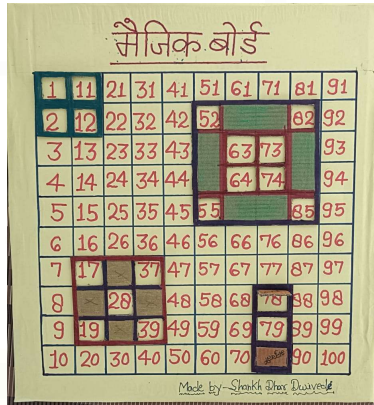 मैजिक बोर्ड
1 11 21 31 41 51 61 71 81 91
2 12 22 32 42 52 82 92
3 13 23 33 43 63 73 93
4 14 24 34 44 64 74 94
5 15 25 35 45 55 85 95
6 16 26 36 46 56 66 76 86 96
7 17 37 47 57 67 77 87 97
8 28 48 58 68 78 88 98
9 19 39 49 59 69 79 89 99
10 20 30 40 50 60 70 90 100
Made by-Shankh Dhar Dwivedi